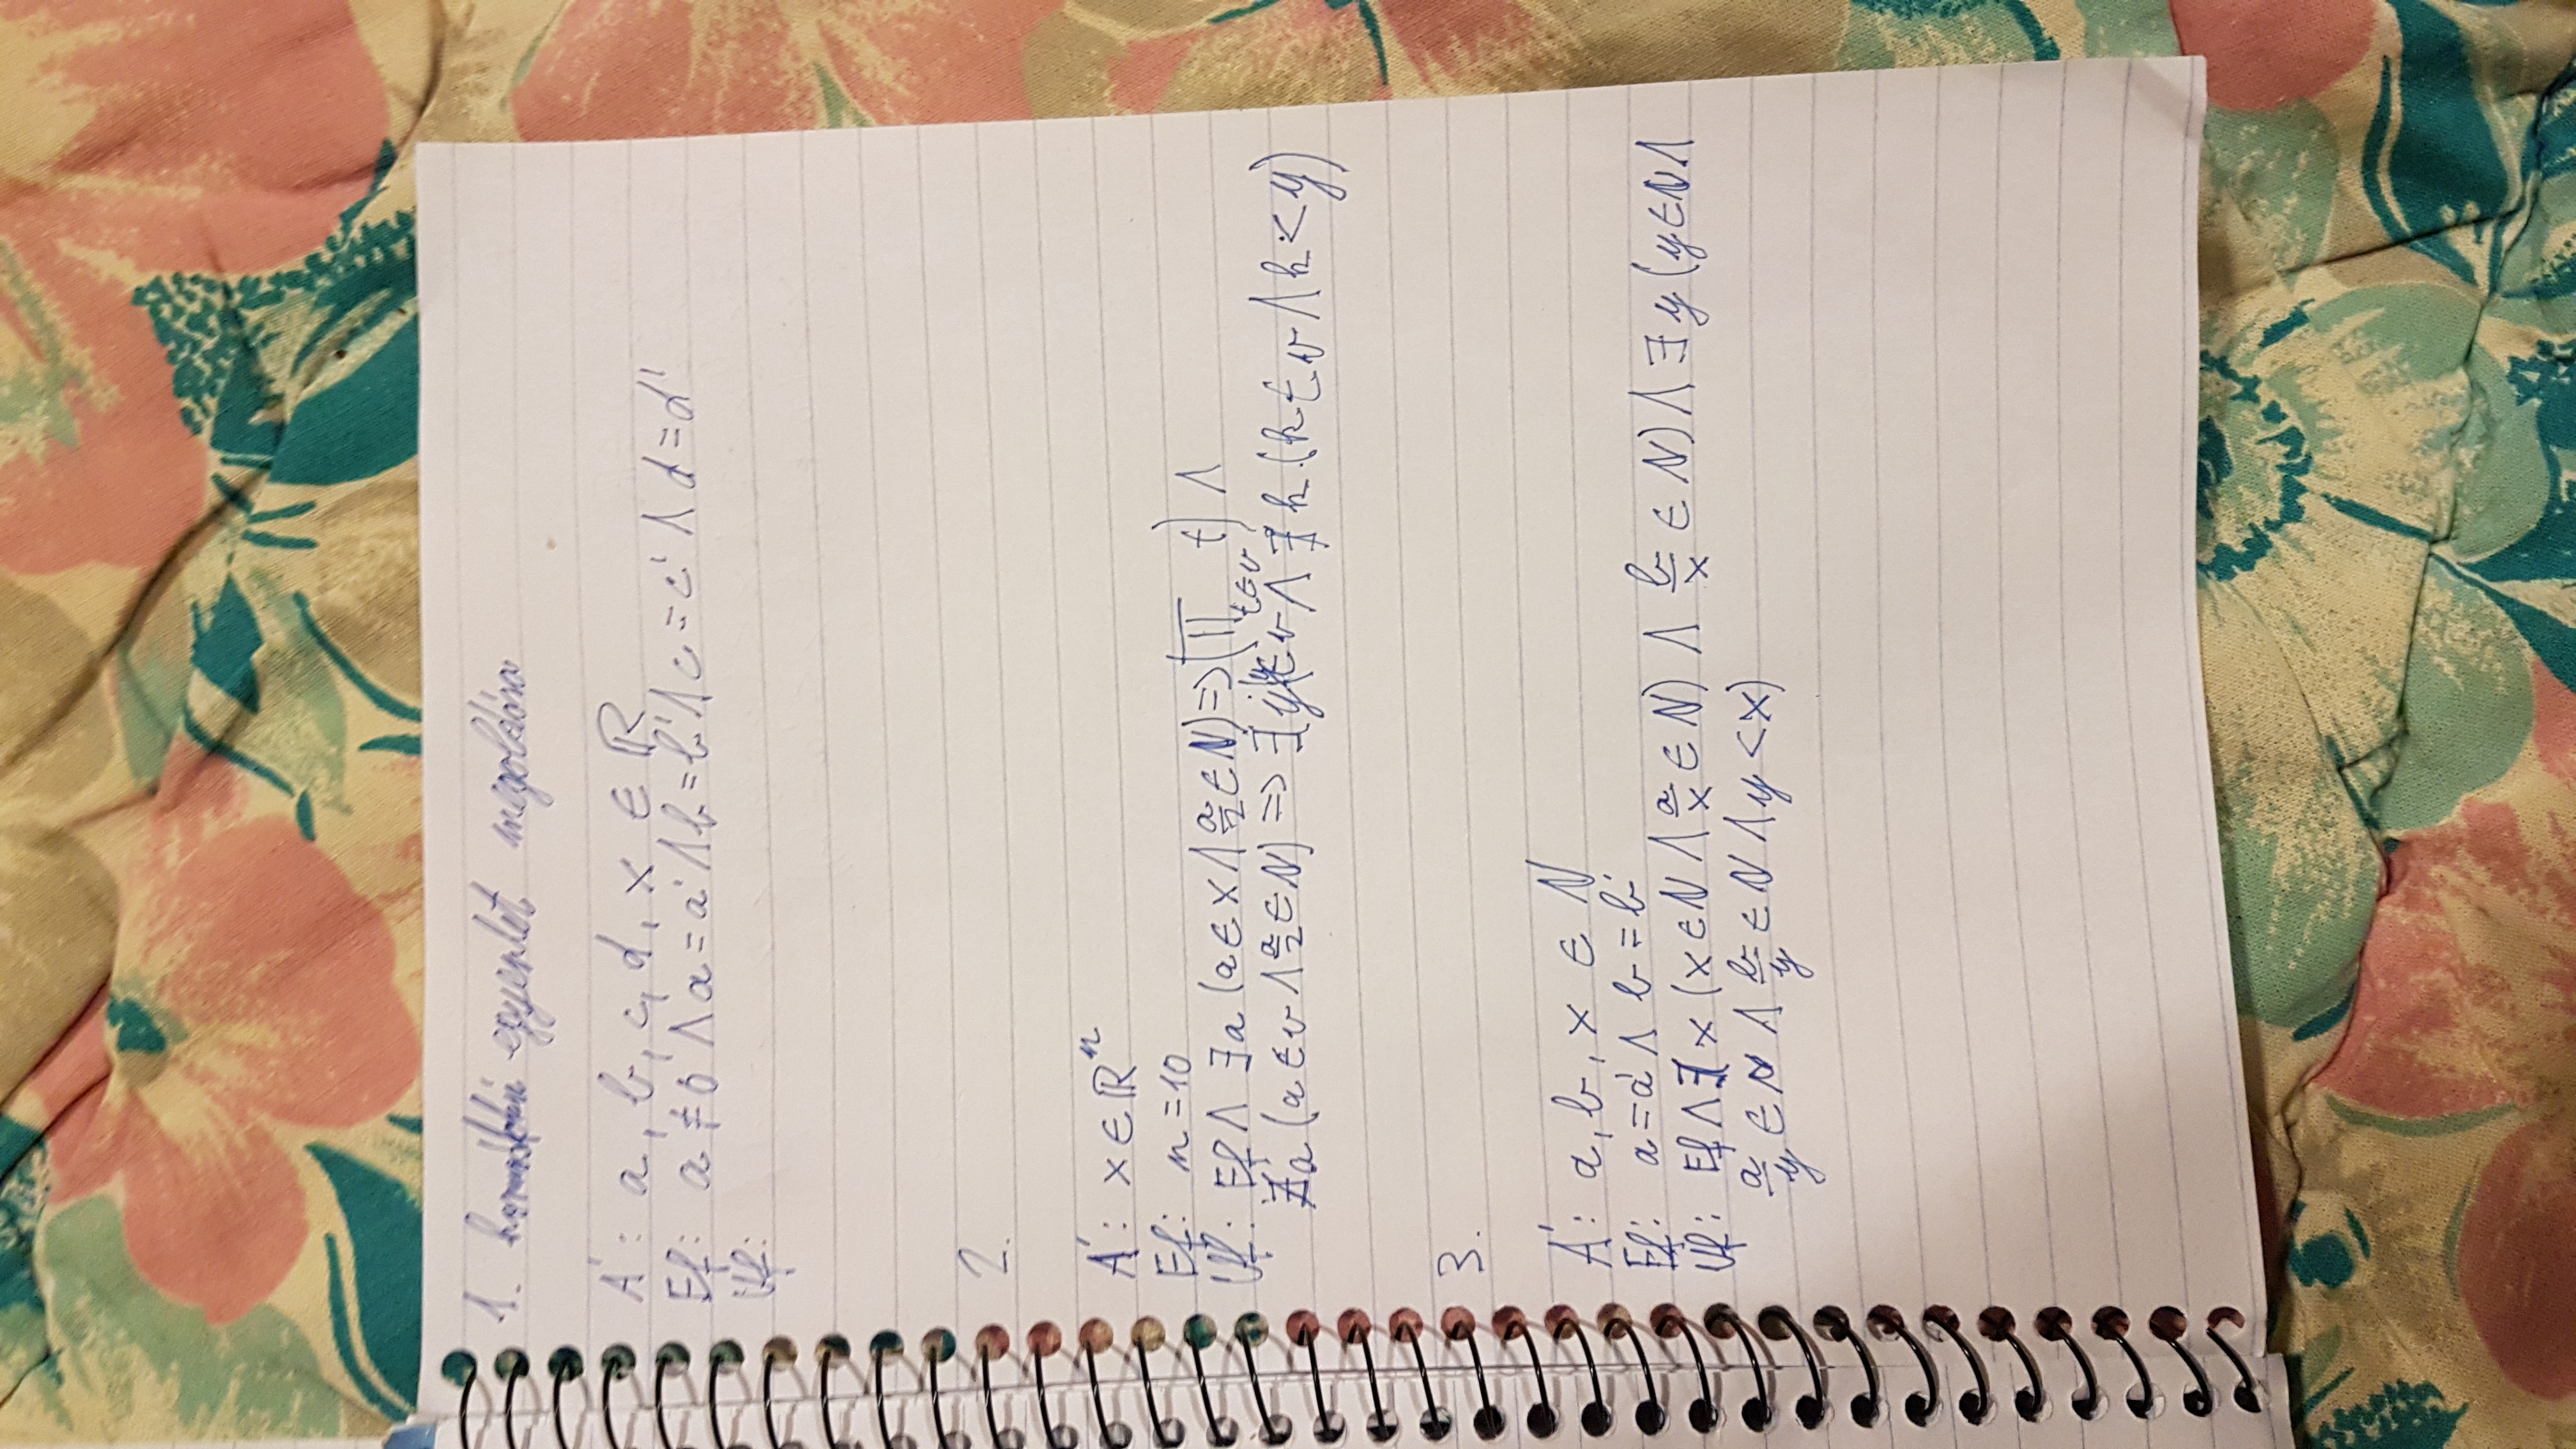 1. harmadfokú egyenlet megoldása
Á: a, b, c, d, x ∈ ℝ
Ef: a ≠ 0 ∧ a = a' ∧ b = b' ∧ c = c' ∧ d = d'
Uf:
2.
Á: x ∈ ℝⁿ
Ef: n = 10
Uf: Ef ∧ ∃a (a ∈ x ∧ a/2 ∈ N) => (∏ t∈v t) ∧
∄a (a ∈ v ∧ a/2 ∈ N) => ∃y(y ∈ v ∧ ∄k (k ∈ v ∧ k < y)
3.
Á: a, b, x ∈ N
Ef: a = a' ∧ b = b'
Uf: Ef ∧ ∃x (x ∈ N ∧ a/x ∈ N) ∧ b/x ∈ N) ∧ ∃y (y ∈ N ∧
a/y ∈ N ∧ b/y ∈ N ∧ y < x)